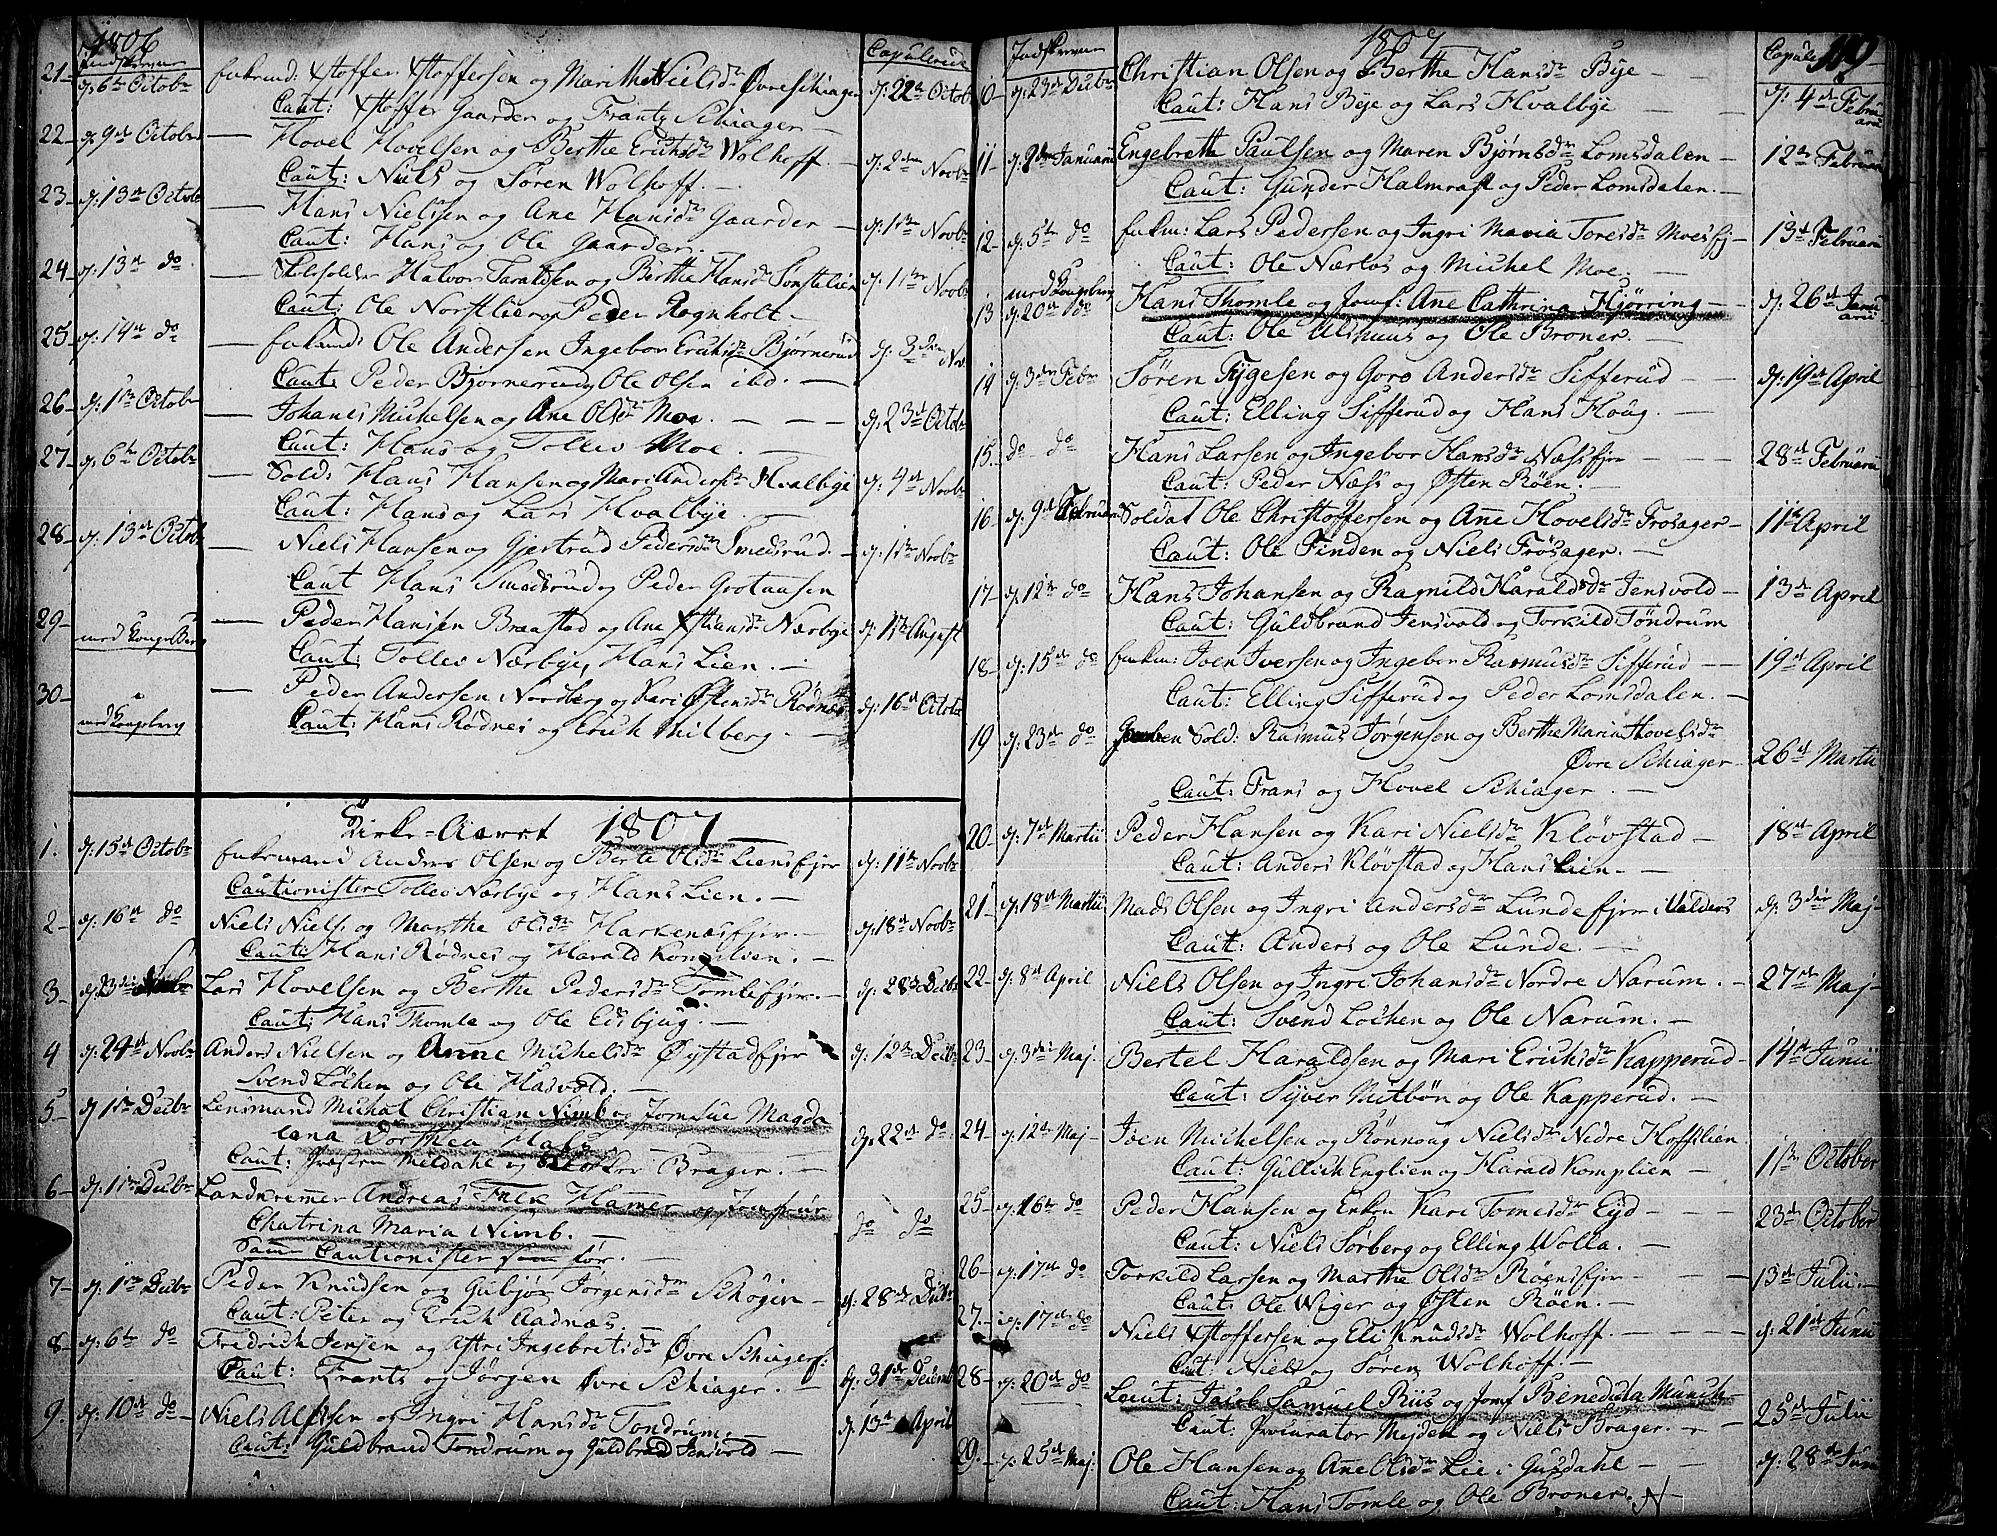 1806
Indskreven
Copulerede
21 d: 6te Octobr Enkemd: Xstoffer Xstoffersen og Marithe Nielsdr Øvre Schiager d: 22de Octobr
Caut: Xstoffer Gaarder og Frantz Schiager —
22 d: 9de October — Hovel Hovelsen og Berthe Erichsdr Wolhoff. — d: 2den Novbr
Caut: Niels og Søren Wolhoff. —
23 d: 13de October — Hans Nielsen og Ane Hansdr Gaarder — d: 11te Novbr
Caut: Hans og Ole Gaarder.
24 d: 13de do — Halvor Taraldsen og Berthe Hansdr Sønstelien d: 11te Novbr
Caut: Ole Norstlien og Peder Rognholt —
25 d: 14de do — Enkemd: Ole Andersen Ingebor Erichsdr Bjørnerud d: 3die Nov.
Caut: Peder Bjørnerud og Ole Olsen ibd. —
26 d: 1ste Octobr — Johanes Michelsen og Ane Olsdr Moe. — — — d: 23de Octobr
Caut: Hans og Tollev Moe —
27 d: 6te Octobr — Sold: Hans Hansen og Mari Andersdr Hvalbye d: 4de Novbr
Caut: Hans og Lars Hvalbye. —
28 d: 13de Octobr — Niels Hansen og Gjertrud Pedersdr Smedsrud. — d: 11te Novbr
Caut Hans Smedsrud og Peder Grotaasen
29 med Konge Berg — Peder Hansen Braastad og Ane Xstiansdr Nærbye d: 11te August
Caut: Tollev Nærbye, Hans Lien. —
30 med Kongeberg — Peder Andersen Nordberg og Kari Østensdr Rødnes d: 16de Octobr
Caut: Hans Rødnes og Erich Milberg. —
Kirke-Aaret 1807
1. d: 15de Octobr Enkemand Anders Olsen og Berte Olsdr Liensejer d: 11te Novbr
Cautionister Tollev Nærbye og Hans Lien. —
2 d: 16de do Niels Niels. og Marthe Olsdr Harkenæsejer. — d: 18de Novbr
Caut: Hans Rødnes og Harald Komplien. —
3 d: 23de Novbr Lars Hovelsen og Berthe Pedersdr Tomleejer. — d: 28de Decbr
Caut: Hans Thomle og Ole Edsbjug. —
4 d: 24de Novbr Anders Nielsen og Anne Michelsdr Øystadejer d: 12te Decbr
Svend Løchen og Ole Hasvold. —
5 d: 1ste Decbr Lensmand Michal Christian Nimb og Jomfue Magda
lena Dorthea d: 22de do
Caut: Præsten Meldahl og Klokker Brager. —
6 d: 11te Decbr Landkremmer Andreas Falk Hamer og Jomfrue
Chatrina Maria Nimb. — do do
Samme Cautionister som før. —
7 d: 1ste Decbr Peder Knudsen og Gubjør Jørgensdr Schøgen — d: 28de Decbr
Caut: Peter og Erich Aadnæs. —
8 d: 6te do Fredrich Jensen og Astri Ingebretsdr Øvre Schiager d: 31de Decemb
Caut: Frants og Jørgen Øvre Schiager. —
9. d: 10de do Niels Alfsen og Ingri Hansdr Tondrum. — d: 13de April
Caut: Guldbrand Tondrum og Guldbrand Jensvold —
1807
119
Indskreven
Copule
10 d: 23de Decbr Christian Olsen og Berthe Hansdr Bye — d: 4de Februarii
Caut: Hans Bye og Lars Hvalbye —
11 d: 2den Januarii Engebreth Paulsen og Maren Bjørnsdr Lomsdalen — 12te Februarii
Caut: Gunder Halmrast og Peder Lomsdalen. —
12 d: 5te do Enkem: Lars Pedersen og Ingri Maria Toresdr Moesej — 13de Februarii
Caut: Ole Nærløs og Michel Moe. —
med Kongeberg
13 d: 20de do Hans Thomle og Jomf: Ane Cathrina Hjørring — d: 26de Januarii
Caut: Ole Ulshuus og Ole Broner. —
14 d: 3die Febr Søren Tygesen og Goro Andersdr Sifferud — d: 19de April
Caut: Elling Sifferud og Hans Houg. —
15. do do Hans Larsen og Ingebor Hansdr Næssejer — 28de Februarii
Caut: Peder Næss og Østen Røen. —
16 d: 9de Februarii Soldat Ole Christoffersen og Ane Hovelsdr Frøsager — 11te April
Caut: Ole Finden og Niels Frøsager. —
17 d: 12te do Hans Johansen og Ragnild Haraldsdr Jensvold — 13de April
Caut: Guldbrand Jensvold og Torkild Tøndrum
18 d: 15de do Enkm: Joen Iversen og Ingebor Rasmusdr Sifferud — 19de April
Caut: Elling Sifferud og Peder Lomsdalen. —
19 d: 23de do Sold: Rasmus Jørgensen og Berthe Maria Hovelsdr
Øvre Schiager — 26de Martii
Caut: Frans og Hovel Schiager. —
20 d: 7de Martii Peder Hansen og Kari Nielsdr Kløvstad — 18de April
Caut: Anders Kløvstad og Hans Lien —
21 d: 18de Martii Mads Olsen og Ingri Andersdr Lunde Ejer i Valders d: 3die Maj —
Caut: Anders og Ole Lunde. —
22 d: 8de April Niels Olsen og Ingri Johansdr Nordre Narum. — 27de Maj —
Caut: Svend Lochen og Ole Narum. —
23 d: 3die Maj Bertel Haraldsen og Mari Erichsdr Kapperud — 14de Junii
Caut: Syver Mitbøn og Ole Kapperud. —
24 d: 12te Maj — Joen Michelsen og Rønnoug Nielsdr Nedre Hoffslien 11te October
Caut: Gullich Englien og Harald Komplien —
25 d: 16de do Peder Hansen og Enken Kari Tomesdr Eid — 23de October
Caut: Niels Sørberg og Elling Wolla. —
26 d: 17de do Torkild Larsen og Marthe Olsdr Røensejer — 13de Julii —
Caut: Ole Wiger og Østen Røen. —
27. d: 17de do Niels Xstoffersen og Eli Knudsdr Wolhoff. — d: 21de Junii
Caut: Niels og Søren Wolhoff. —
28 d: 20de do Leut: Jacob Samuel Riis og Jomf Benedicta Munch — 25de Julii
Caut: Procurator Mejdel og Niels Brager. —
29. d: 25de Maj. Ole Hansen og Ane Olsdr Lie i Gusdahl — d: 28de Junii
Caut: Hans Tomle og Ole Broner.